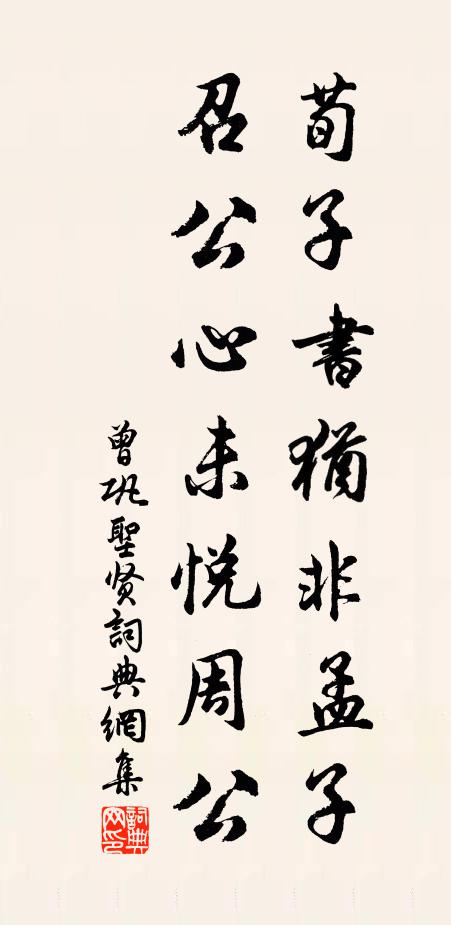 荀子書猶非孟子
召公心未悦周公
曾巩聖贤詞典網集
詞典网印